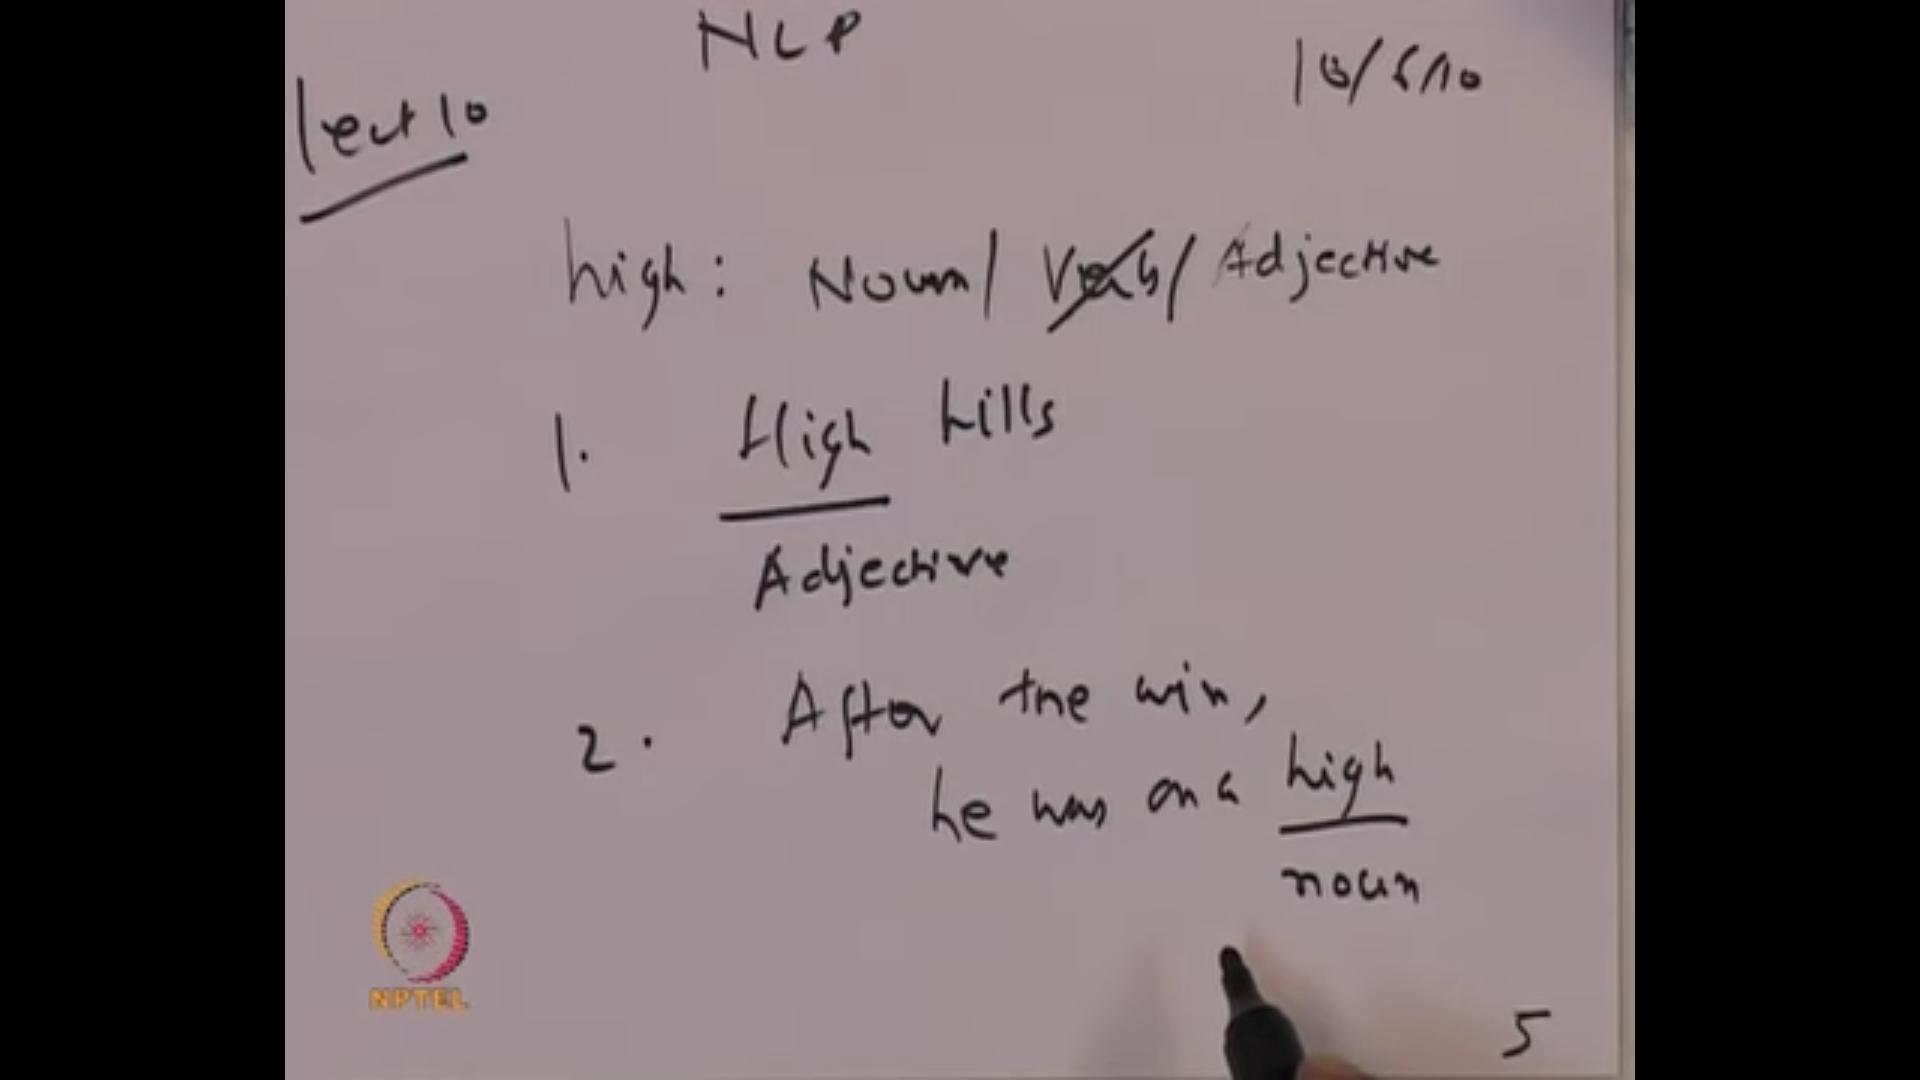 NLP
lect 10
high: Noun/ Verb/ Adjective
1. High hills
Adjective
2. After the win,
he was on a high
noun
NPTEL
5